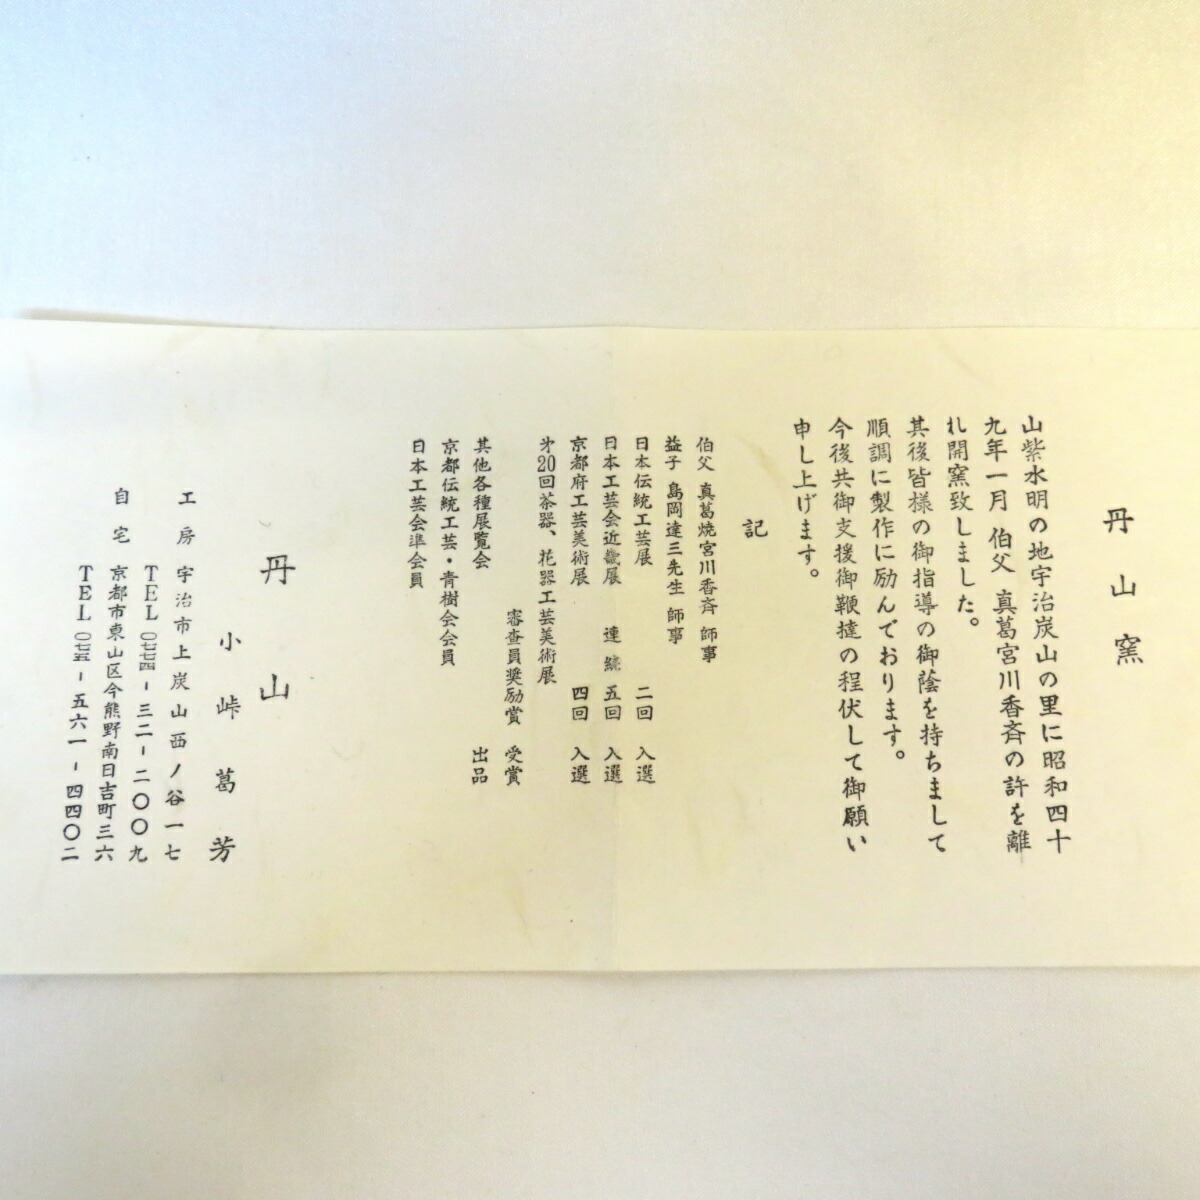 丹山窯
山紫水明の地宇治炭山の里に昭和四十
九年一月 伯父 真葛宮川香斉の許を離
れ開窯致しました。
其後皆様の御指導の御蔭を持ちまして
順調に製作に励んでおります。
今後共御支援御鞭撻の程伏して御願い
申し上げます。
記
伯父 真葛焼宮川香斉 師事
益子 島岡達三先生 師事
日本伝統工芸展 二回 入選
日本工芸会近畿展 連続 五回 入選
京都府工芸美術展 四回 入選
㐧20回茶器、花器工芸美術展
審査員奨励賞 受賞
其他各種展覧会 出品
京都伝統工芸・青樹会会員
日本工芸会準会員
丹山
小峠葛芳
工房 宇治市上炭山西ノ谷一七
TEL 〇七七四-三二-二〇〇九
自宅 京都市東山区今熊野南日吉町三六
TEL 〇七五-五六一-四四〇二